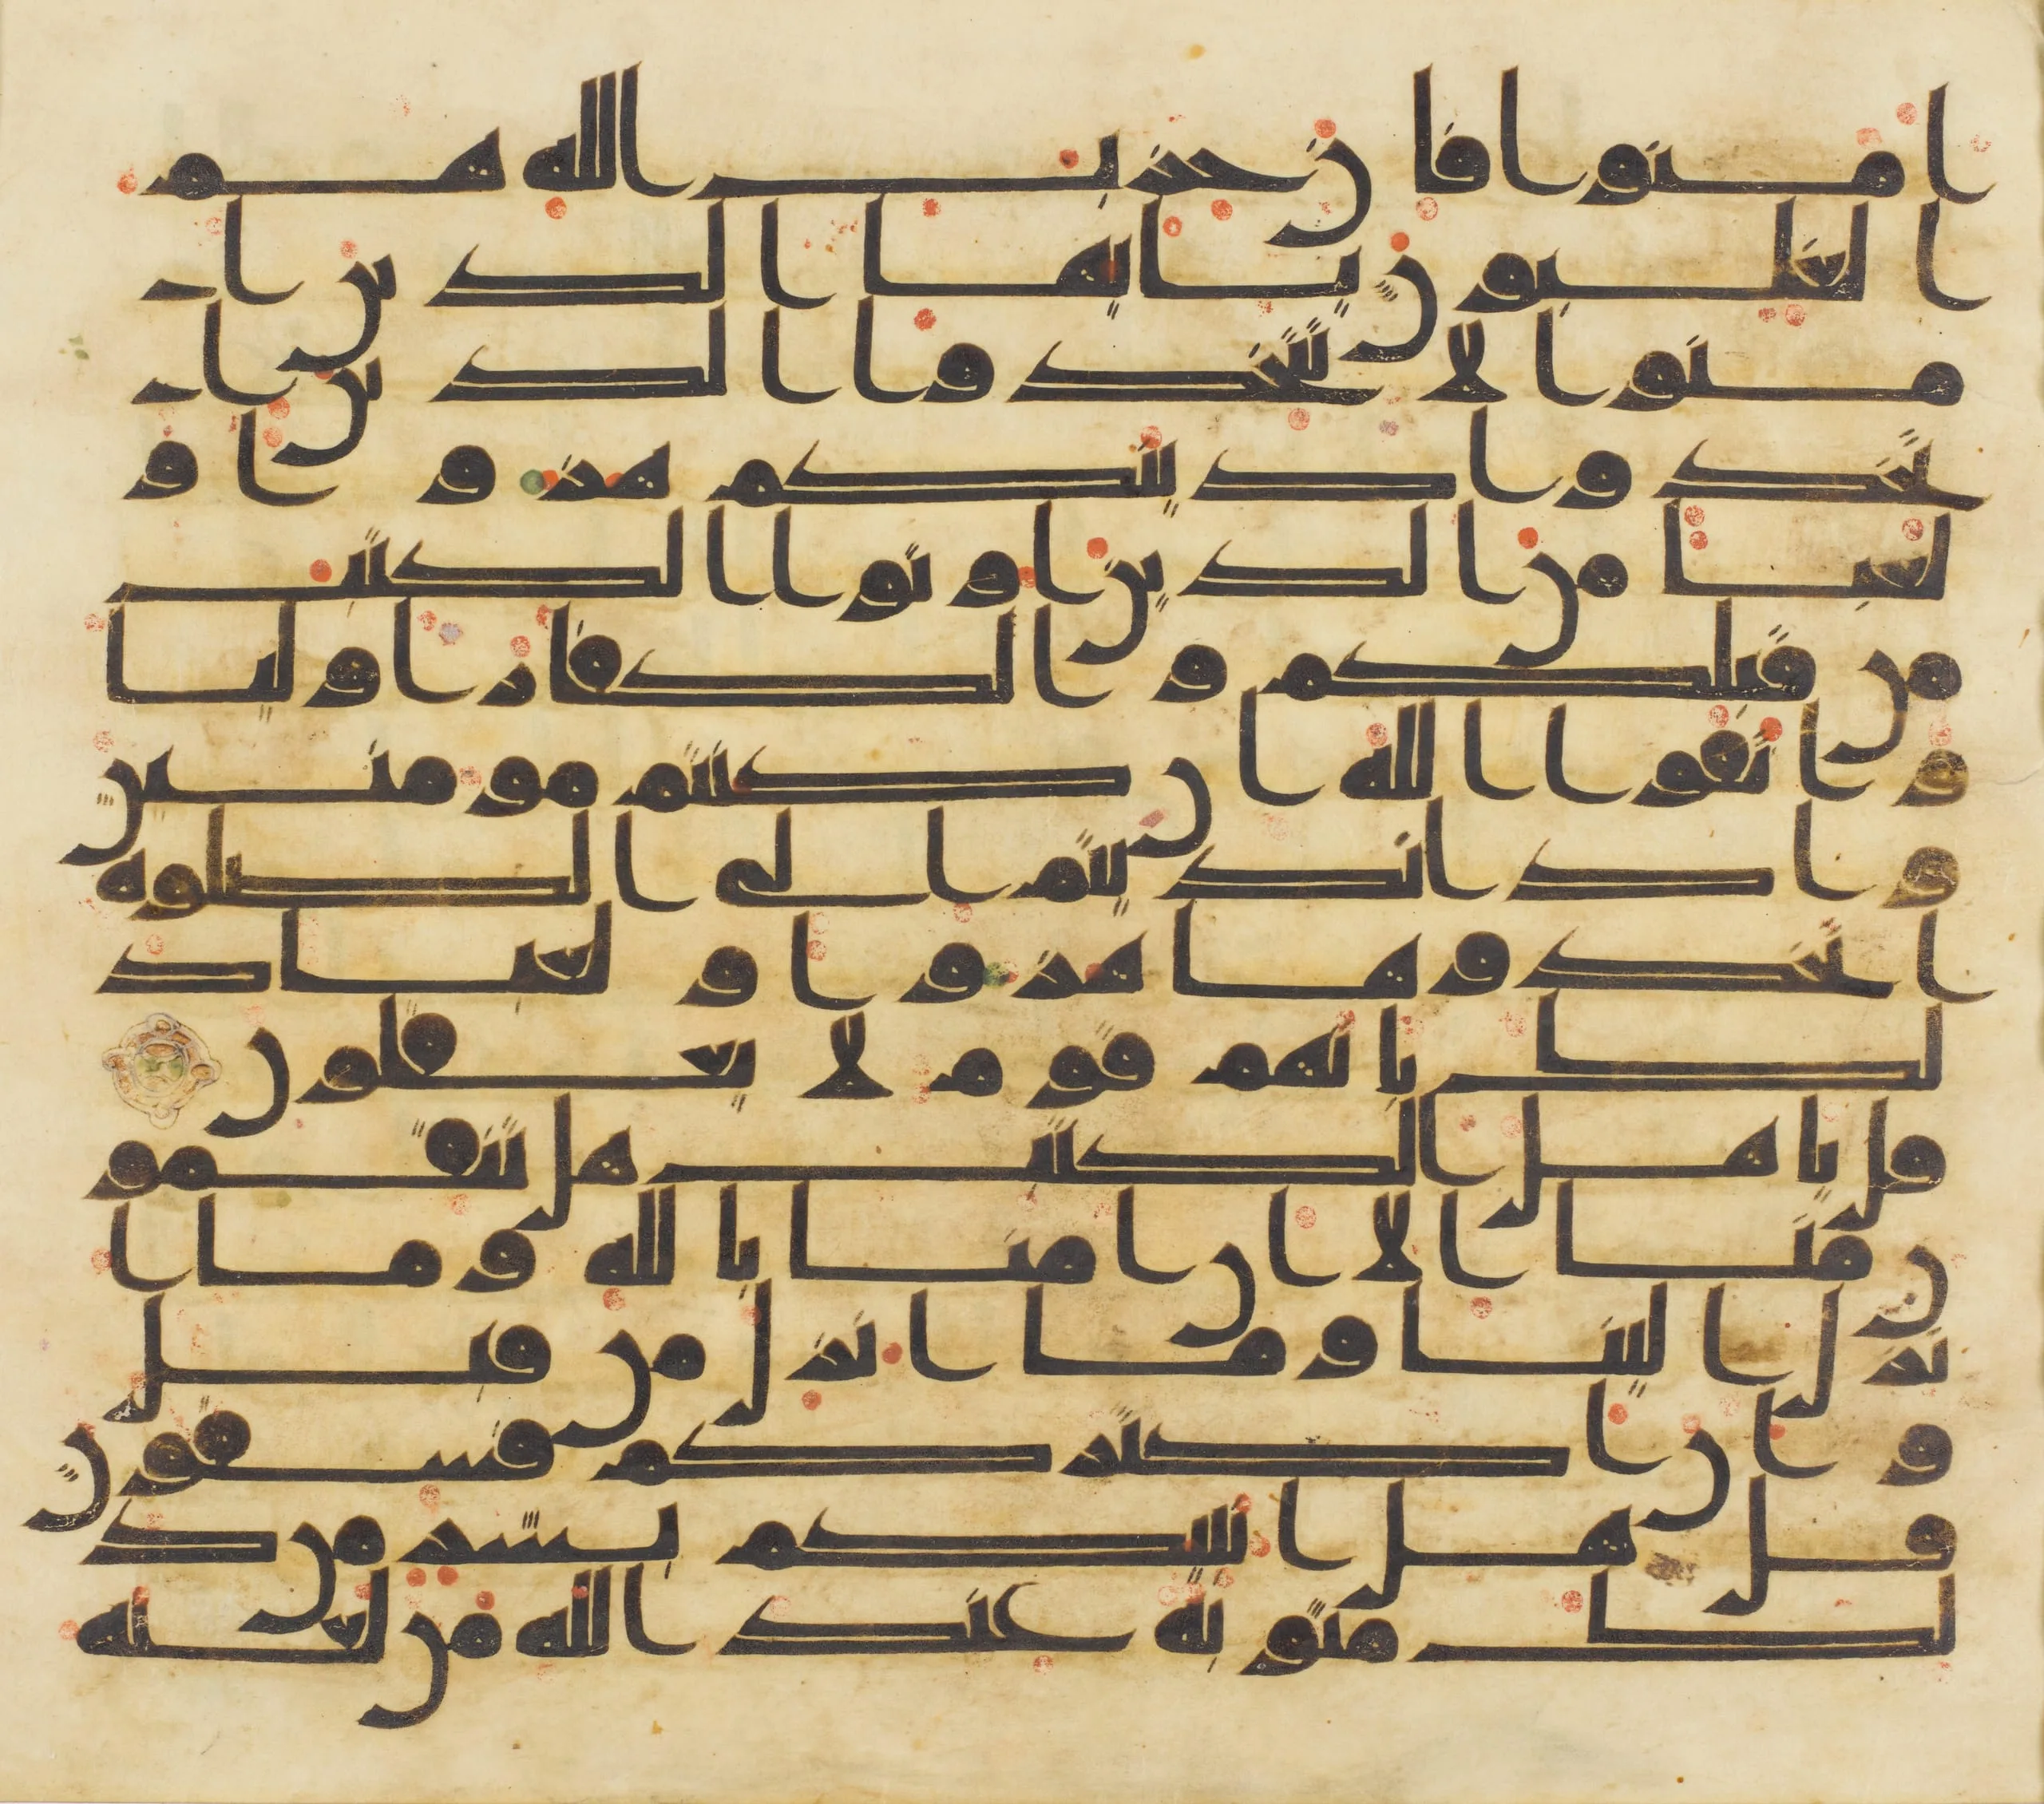 امنوا فان حزب الله هم
ا لغلبون يايها الذين ا
منوا لا تتخذوا الذين ا
تخذوا دينكم هزوا و
لعبا من الذين اوتوا الكتب
من قبلكم و الكفار اوليا
و اتقوا الله ان كنتم مومنين
و اذا نديتم الى الصلوه
ا تخذوها هزوا و لعبا ذ
لك بانهم قوم لا يعقلون
قل ياهل الكتب هل تنقمو
ن منا الا ان امنا بالله و ما ا
نزل الينا و ما انزل من قبل
و ان اكثركم فسقون
قل هل انبيكم بشر من ذ
لك مثوبه عند الله من لعنه